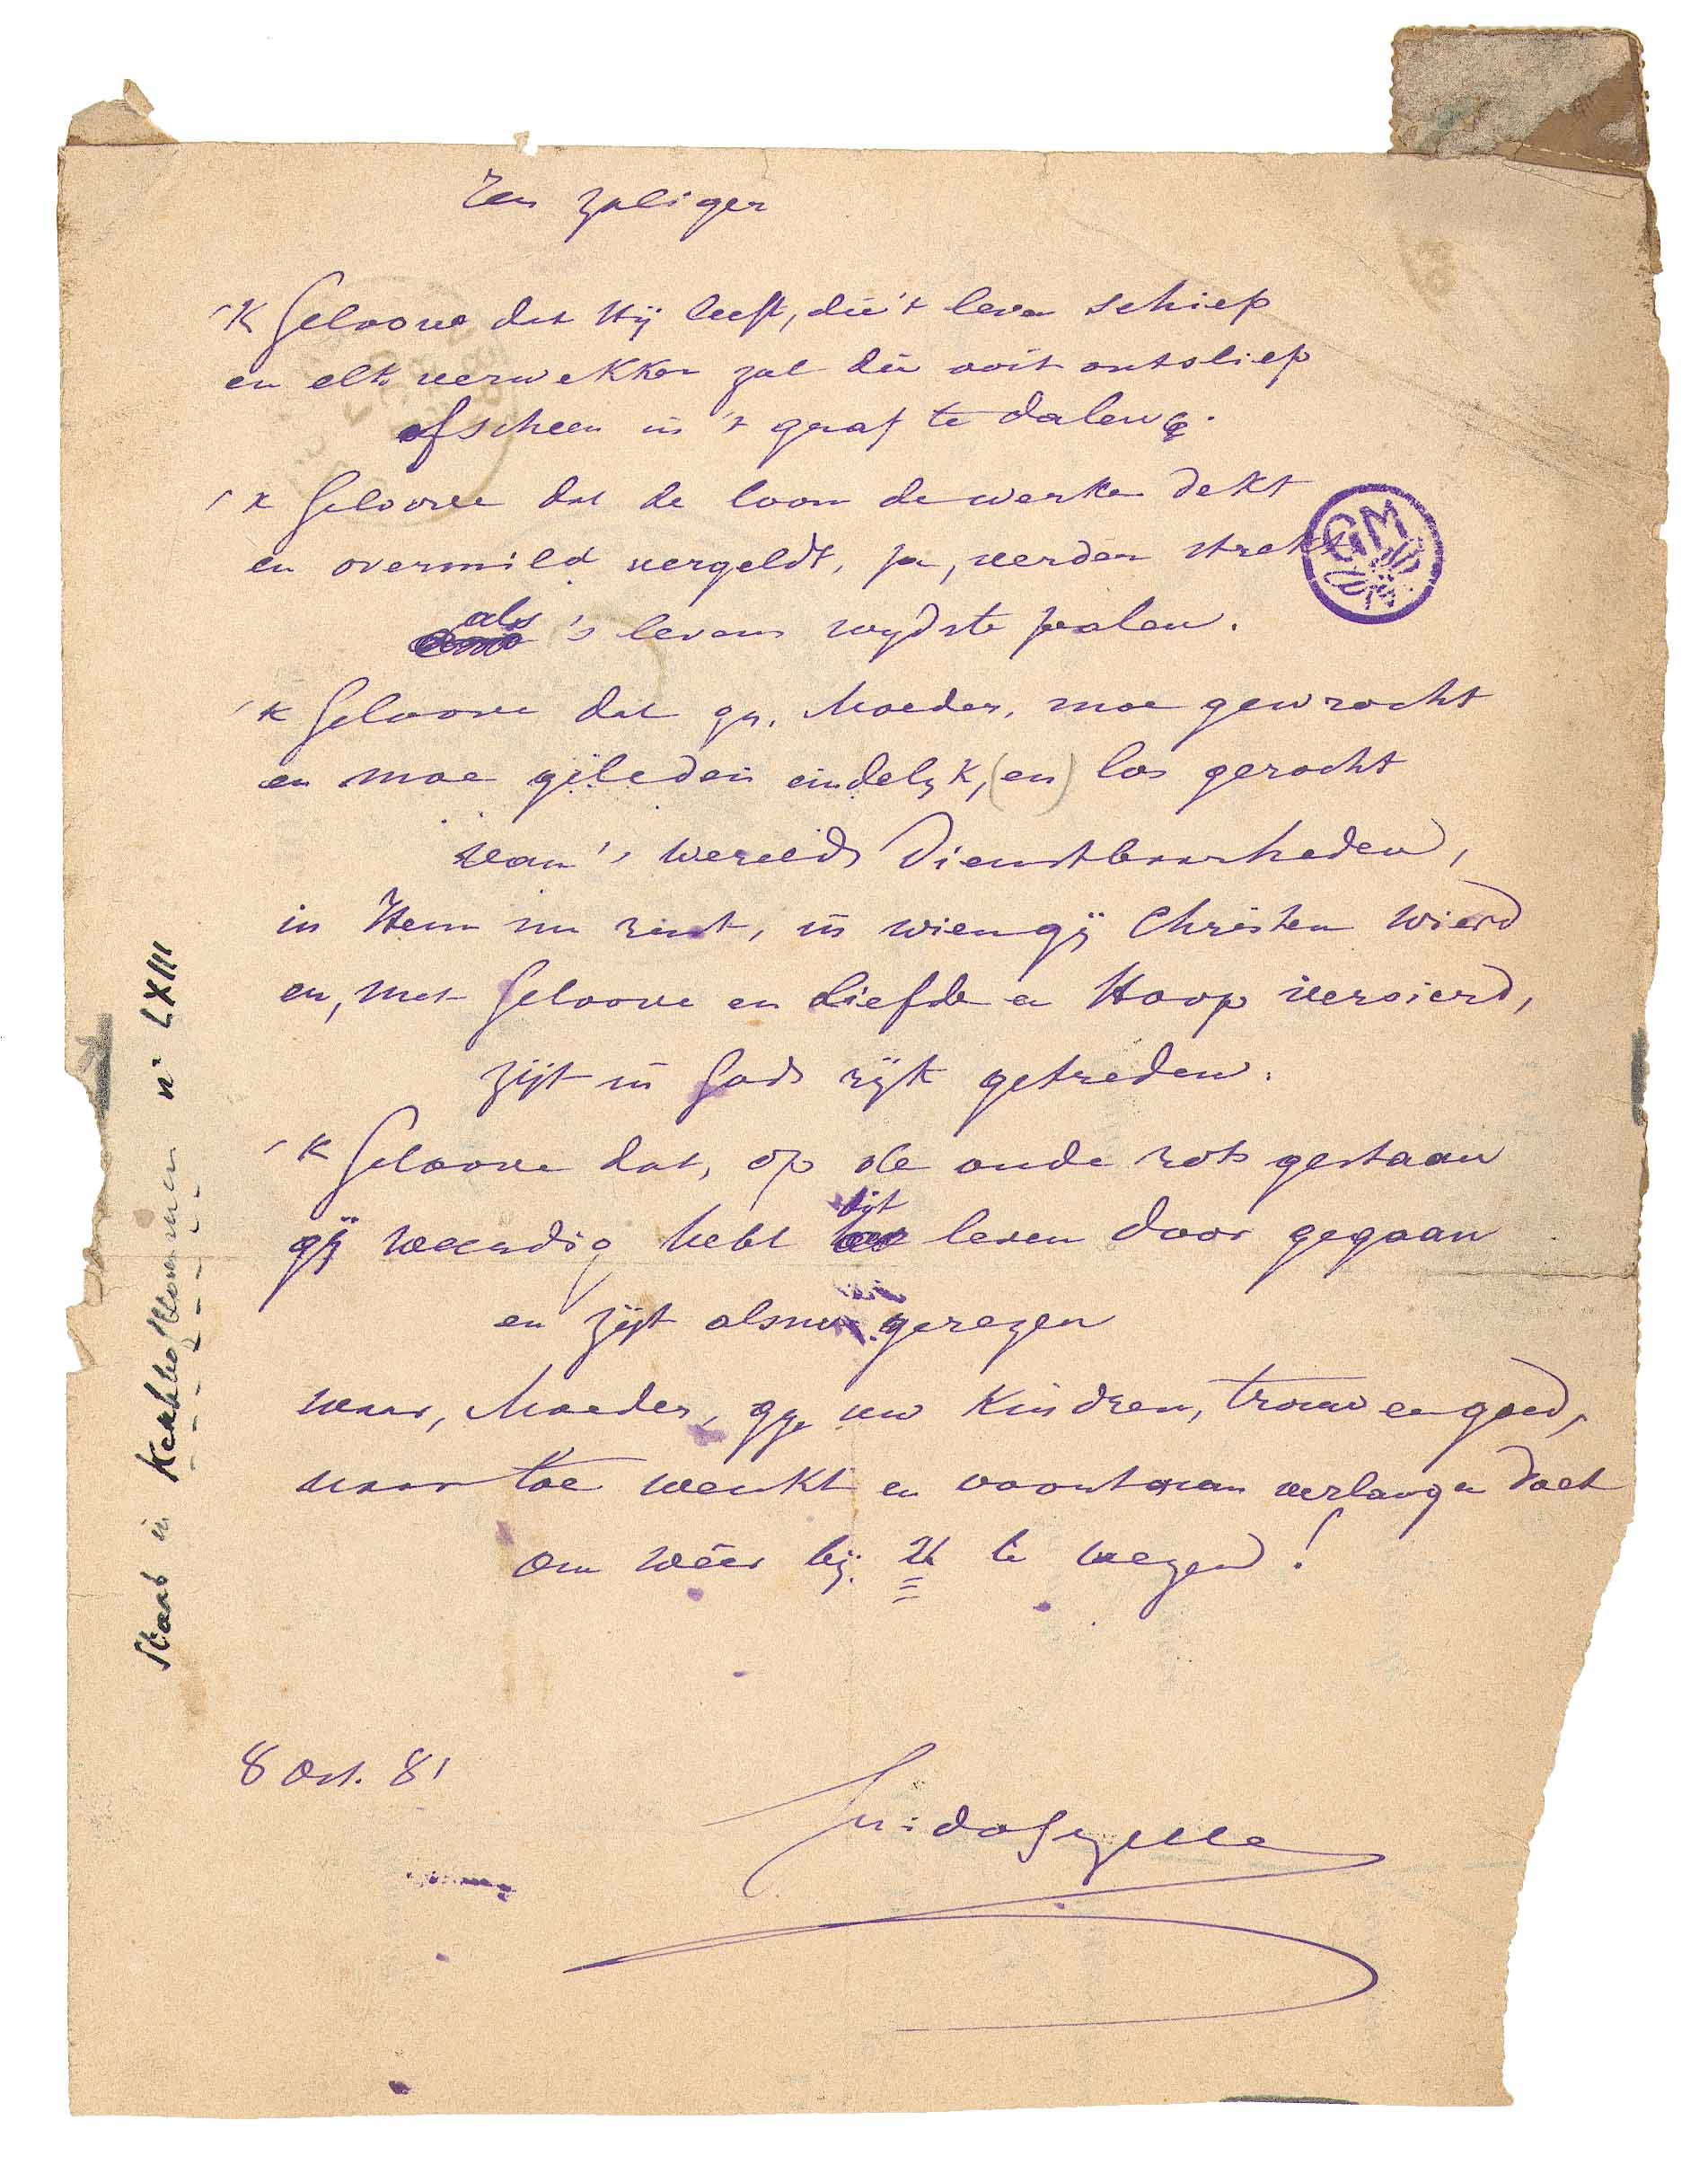 Een zaliger
'K Geloove dat Hij leeft, die 't leven schiep
en elk verwekken zal die ooit ontsliep
of scheen in 't graf te dalen.
'k Geloove dat de loon de werken dekt
en overmild vergeldt, ja, verder strekt
als 's levens wydste palen.
'k Geloove dat gy, Moeder, moe gewrocht
en moe geleden eindelyk, (en) los gerocht
van 's werelds Dienstbaarheden,
in Hem nu rust, in wien gij Christen wierd
en, met Geloove en Liefde en Hoop versierd,
zijt in Gods rijk getreden.
'k Geloove dat, op de oude rots gestaan
gij weerdig hebt dit leven door gegaan
en zijt alsnu gerezen
waar, Moeder, gy uw Kindren, trouw en goed,
naar toe wenkt en voortaan verlangen doet
om wéér bij U te wezen!
8 Oct. 81
Guido Gezelle
GM
Staat in Kerkhofblommen n° LXIII